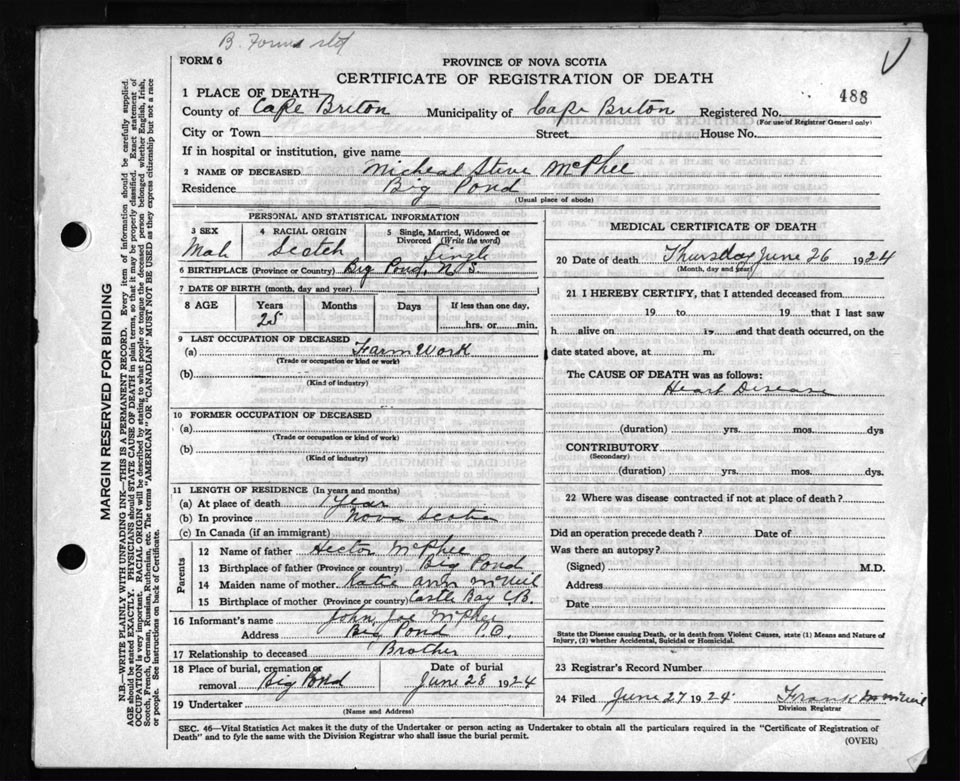 B. Forms
FORM 6
PROVINCE OF NOVA SCOTIA
CERTIFICATE OF REGISTRATION OF DEATH
488
1 PLACE OF DEATH
County of Cape Breton Municipality of Cape Breton Registered No.
(For use of Registrar General only)
City or Town Street House No.
If in hospital or institution, give name
2 NAME OF DECEASED Micheal Steve McPhee
Residence Big Pond
(Usual place of abode)
PERSONAL AND STATISTICAL INFORMATION
3 SEX 4 RACIAL ORIGIN 5 Single, Married, Widowed or Divorced (Write the word)
Male Scotch Single
6 BIRTHPLACE (Province or Country) Big Pond, N.S.
7 DATE OF BIRTH (month, day and year)
8 AGE Years Months Days If less than one day,
25 hrs. or min.
9 LAST OCCUPATION OF DECEASED
(a) Farm Work
(Trade or occupation or kind or work)
(b)
(Kind of industry)
10 FORMER OCCUPATION OF DECEASED
(a)
(Trade or occupation or kind of work)
(b)
(Kind of industry)
11 LENGTH OF RESIDENCE (In years and months)
(a) At place of death Year
(b) In province Nova Scotia
(c) In Canada (if an immigrant)
Parents
12 Name of father Hector McPhee
13 Birthplace of father (Province or country) Big Pond
14 Maiden name of mother Katie Ann McNeil
15 Birthplace of mother (Province or country) Castle Bay C.B.
16 Informant's name John Joe McPhee
Address Big Pond P.O.
17 Relationship to deceased Brother
18 Place of burial, cremation or removal Big Pond
Date of burial
June 28 1924
19 Undertaker
(Name and Address)
MEDICAL CERTIFICATE OF DEATH
20 Date of death Thursday June 26 1924
(Month, day and year)
21 I HEREBY CERTIFY, that I attended deceased from
19 to 19 that I last saw
h alive on 19 and that death occurred, on the
date stated above, at m.
The CAUSE OF DEATH was as follows:
Heart Disease
(duration) yrs. mos. dys
CONTRIBUTORY
(Secondary)
(duration) yrs. mos. dys.
22 Where was disease contracted if not at place of death?
Did an operation precede death? Date of
Was there an autopsy?
(Signed) M.D.
Address
Date
State the Disease causing Death, or in death from Violent Causes, state (1) Means and Nature of
Injury, (2) whether Accidental, Suicidal or Homicidal.
23 Registrar's Record Number
24 Filed June 27 1924 Frank
Division Registrar
SEC. 46—Vital Statistics Act makes it the duty of the Undertaker or person acting as Undertaker to obtain all the particulars required in the "Certificate of Registration of
Death" and to fyle the same with the Division Registrar who shall issue the burial permit.
(OVER)
MARGIN RESERVED FOR BINDING
N.B.—WRITE PLAINLY WITH UNFADING INK—THIS IS A PERMANENT RECORD. Every item of information should be carefully supplied.
AGE should be stated EXACTLY. PHYSICIANS should STATE CAUSE OF DEATH in plain terms, so that it may be properly classified. Exact statement of
OCCUPATION is very important. RACIAL ORIGIN will be described by stating to what people or tongue the deceased person belonged whether English, Irish,
Scotch, French, German, Russian, Ruthenian, etc. The terms "AMERICAN" OR "CANADIAN" MUST NOT BE USED as they express citizenship but not a race
or people. See instructions on back of Certificate.